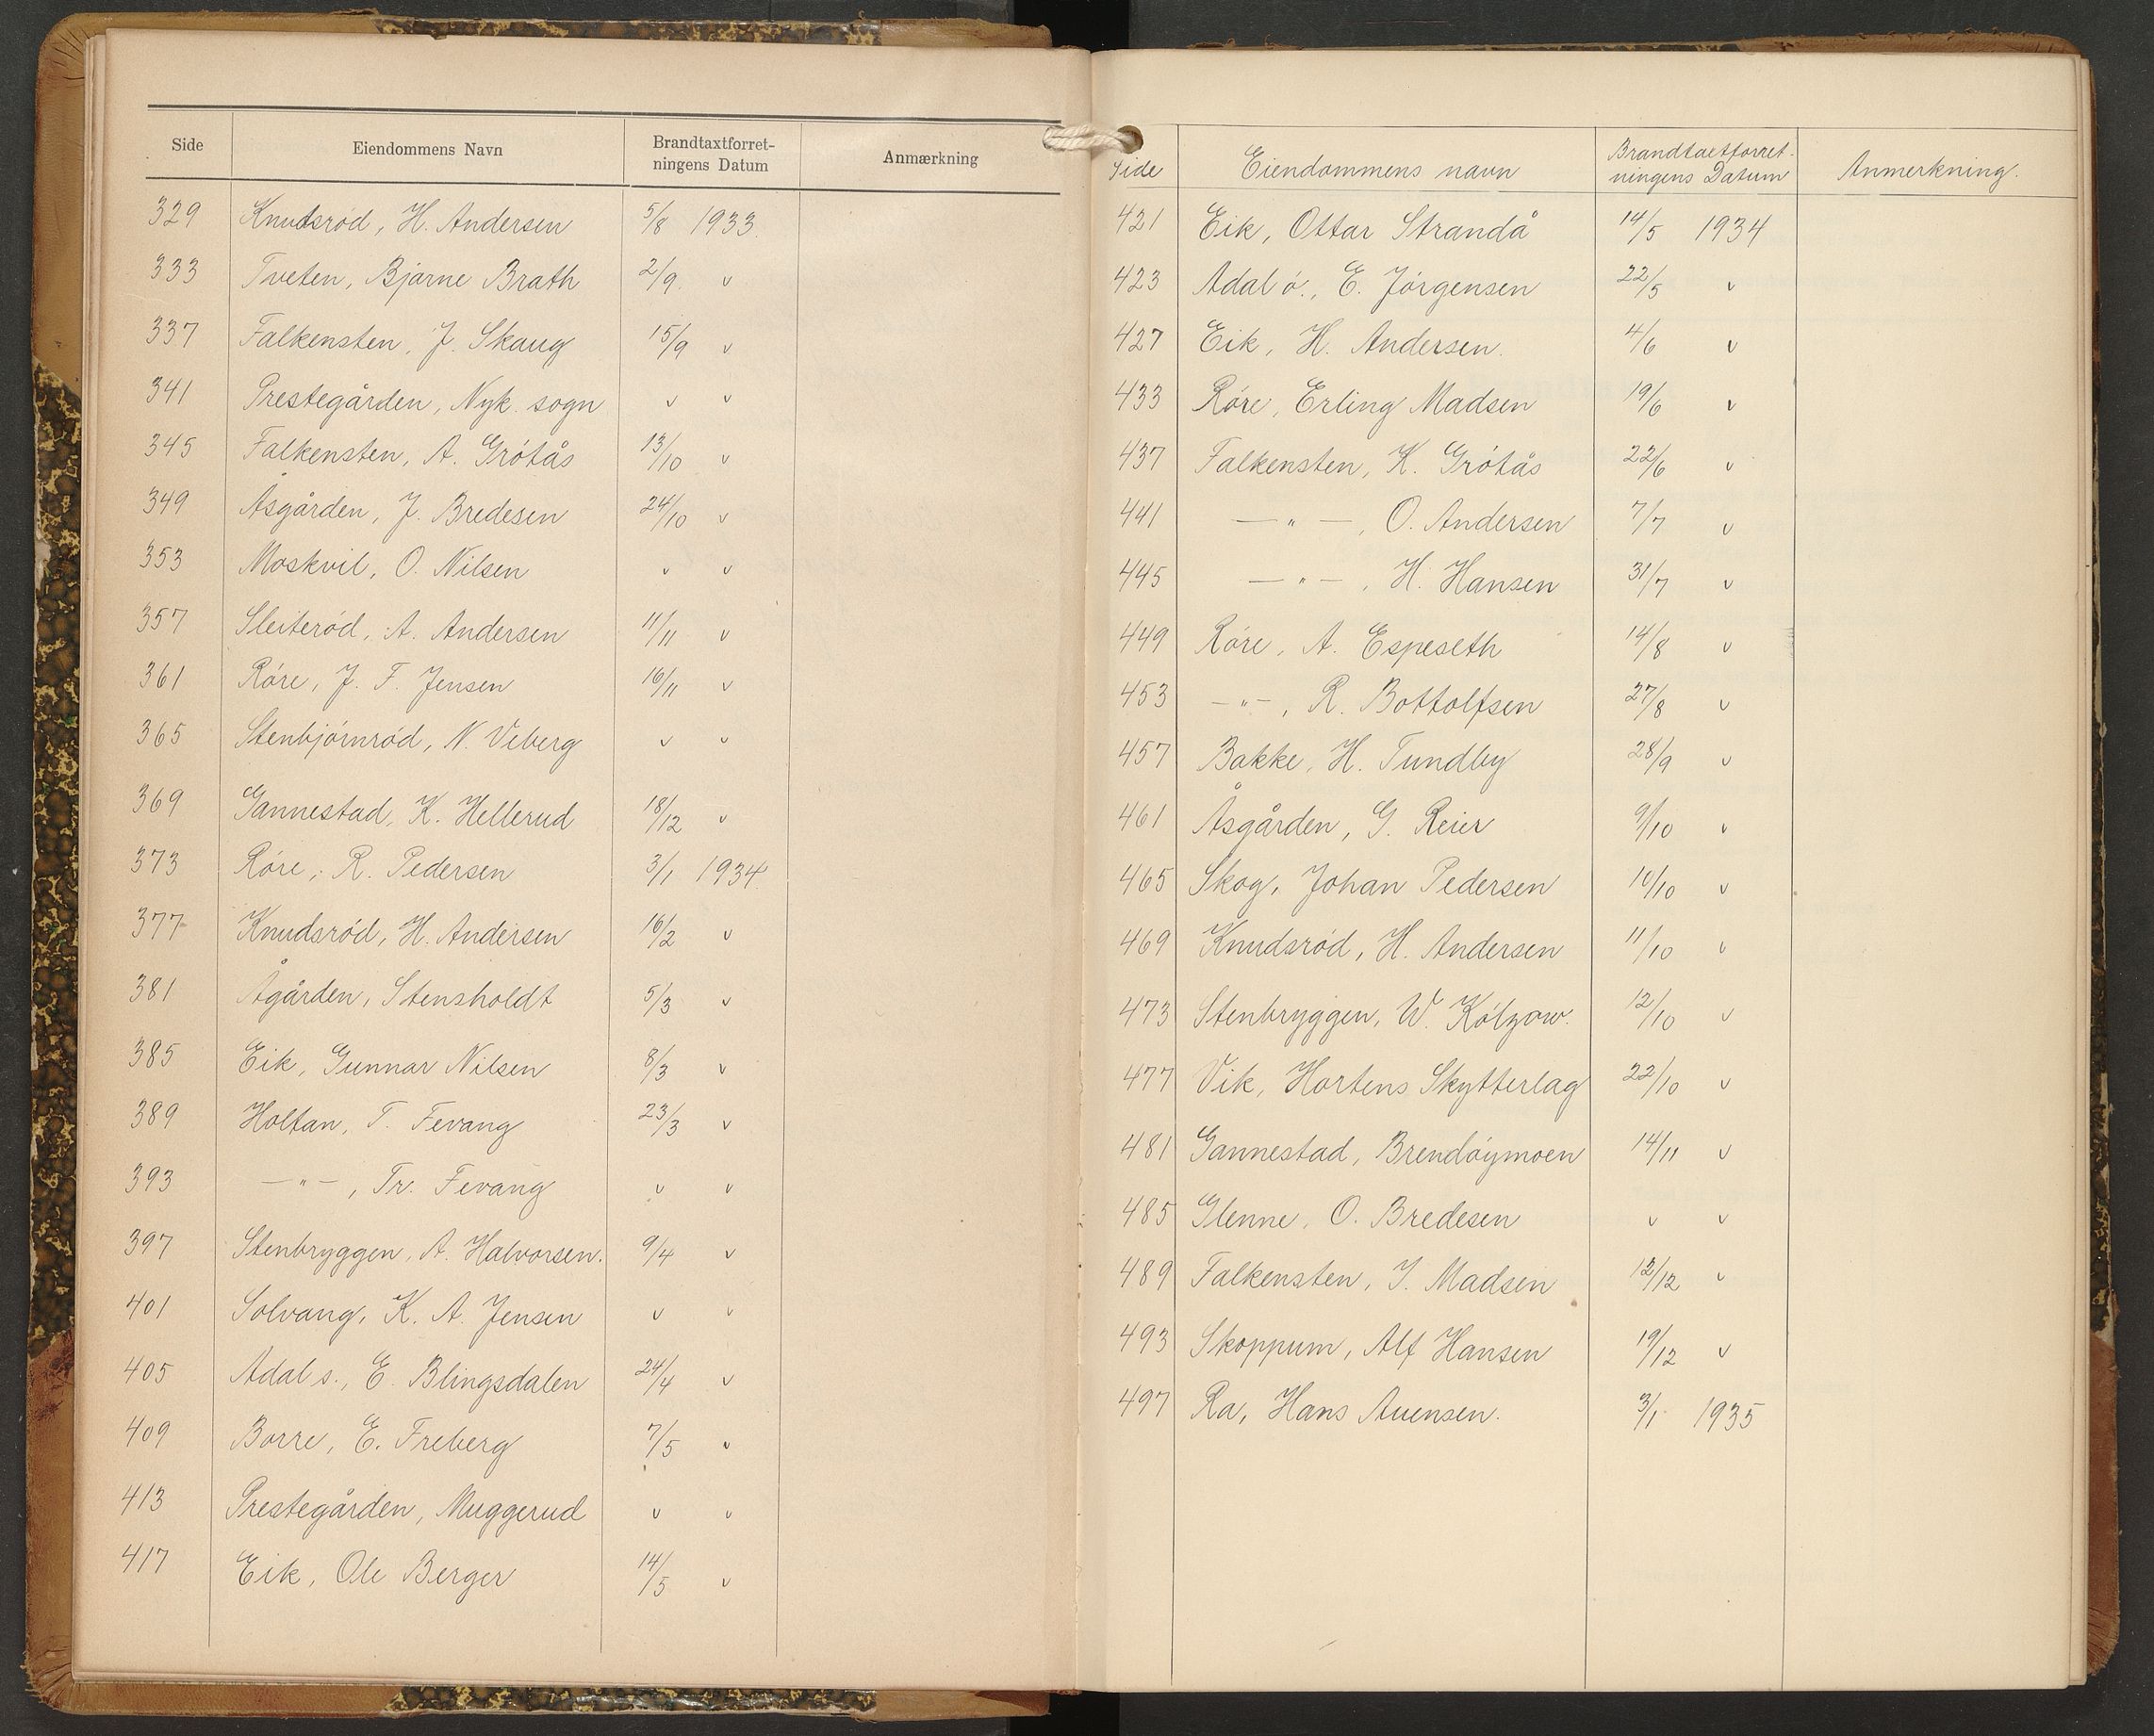 Side Eiendommens Navn Brandtaxtforret- Anmærkning
ningens Datum
329 Knudsrød, H. Andersen 5/8 1933.
333 Tveten, Bjarne Brath 2/9. v
337 Falkensten, J. Skaug 15/9 v
341 Prestegården, Nyk. sogn v v
345 Falkensten, A. Grótås 13/10 v
349 Åsgården, J. Bredesen 24/10 v
353 Moskvil, O. Nilsen v v
357 Sleiterød, A. Andersen 11/11 v
361 Røre, J. F. Jensen 16/11 v
365 Stenbjørnrød, N. Veberg v v
369 Gannestad, K. Hellerud 18/12 v
373 Røre, R. Pedersen 3/1 1934.
377 Knudsrød, H. Andersen 16/2 v
381 Ågården, Stensholdt 5/3 v
385 Eik, Gunnar Nilsen 8/3 v
389 Holtan, T. Fevang 23/3 v
393 — " — , Tr. Fevang v v
397 Stenbryggen, A. Halvorsen. 9/4 v
401 Solvang, K. A. Jensen v v
405 Adal s., E. Blingsdalen 24/4 v
409 Borre, E. Freberg 7/5 v
413 Prestegården, Muggerud v v
417 Eik, Ole Berger 14/5 v
Side Eiendommens navn Brandtaxtforret- Anmerkning.
ningens Datum
421 Eik, Ottar Strandå 14/5 1934
423 Adal ø., E. Jørgensen 22/5 v
427 Eik, H. Andersen. 4/6 v
433 Røre, Erling Madsen 19/6 v
437 Falkensten, K. Grøtås 22/6 v
441 — " — , O. Andersen 7/7 v
445 — " — , H. Hansen 31/7 v
449 Røre, A. Espeseth 14/8 v
453 — " — , R. Bottolfsen 27/8 v
457 Bakke, H. Tundby 28/9 v
461 Åsgården, G. Reier 9/10 v
465 Skog, Johan Pedersen 10/10 v
469 Knudsrød, H. Andersen 11/10 v
473 Stenbryggen, W. Kølzow. 12/10 v
477 Vik, Hortens Skytterlag 22/10 v
481 Gannestad, Brendøymoen 14/11 v
485 Glenne, O. Bredesen v v
489 Falkensten, J. Madsen 12/12 v
493 Skoppum, Alf Hansen 19/12 v
497 Ra, Hans Auensen. 3/1 1935